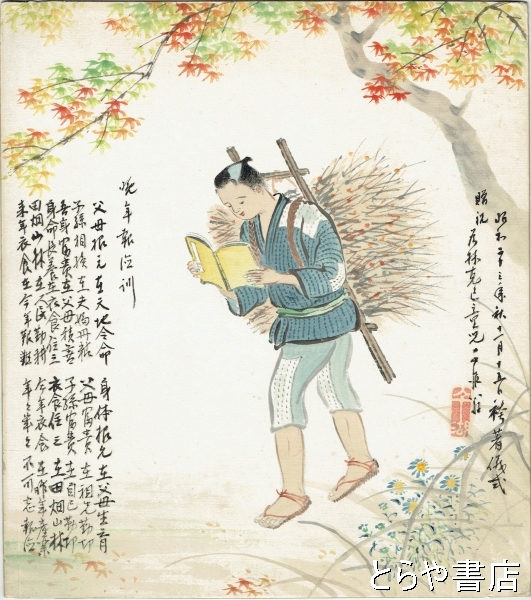 昭和 三年秋十一月十五日袴着儀式
贈祝 若林克己童兄
晩年報徳訓
父母根元在天地令命
身体根元在父母生育
子孫相続在夫婦丹精
父母富貴在祖先勤功
吾身富貴在父母積善
子孫富貴在自己勤功
身命長養在衣食住三
衣食住三在田畑山林
田畑山林在人民勤耕
今年衣食在昨年産業
来年衣食在今年艱難
年々歳々不可忘報徳
とらや書店